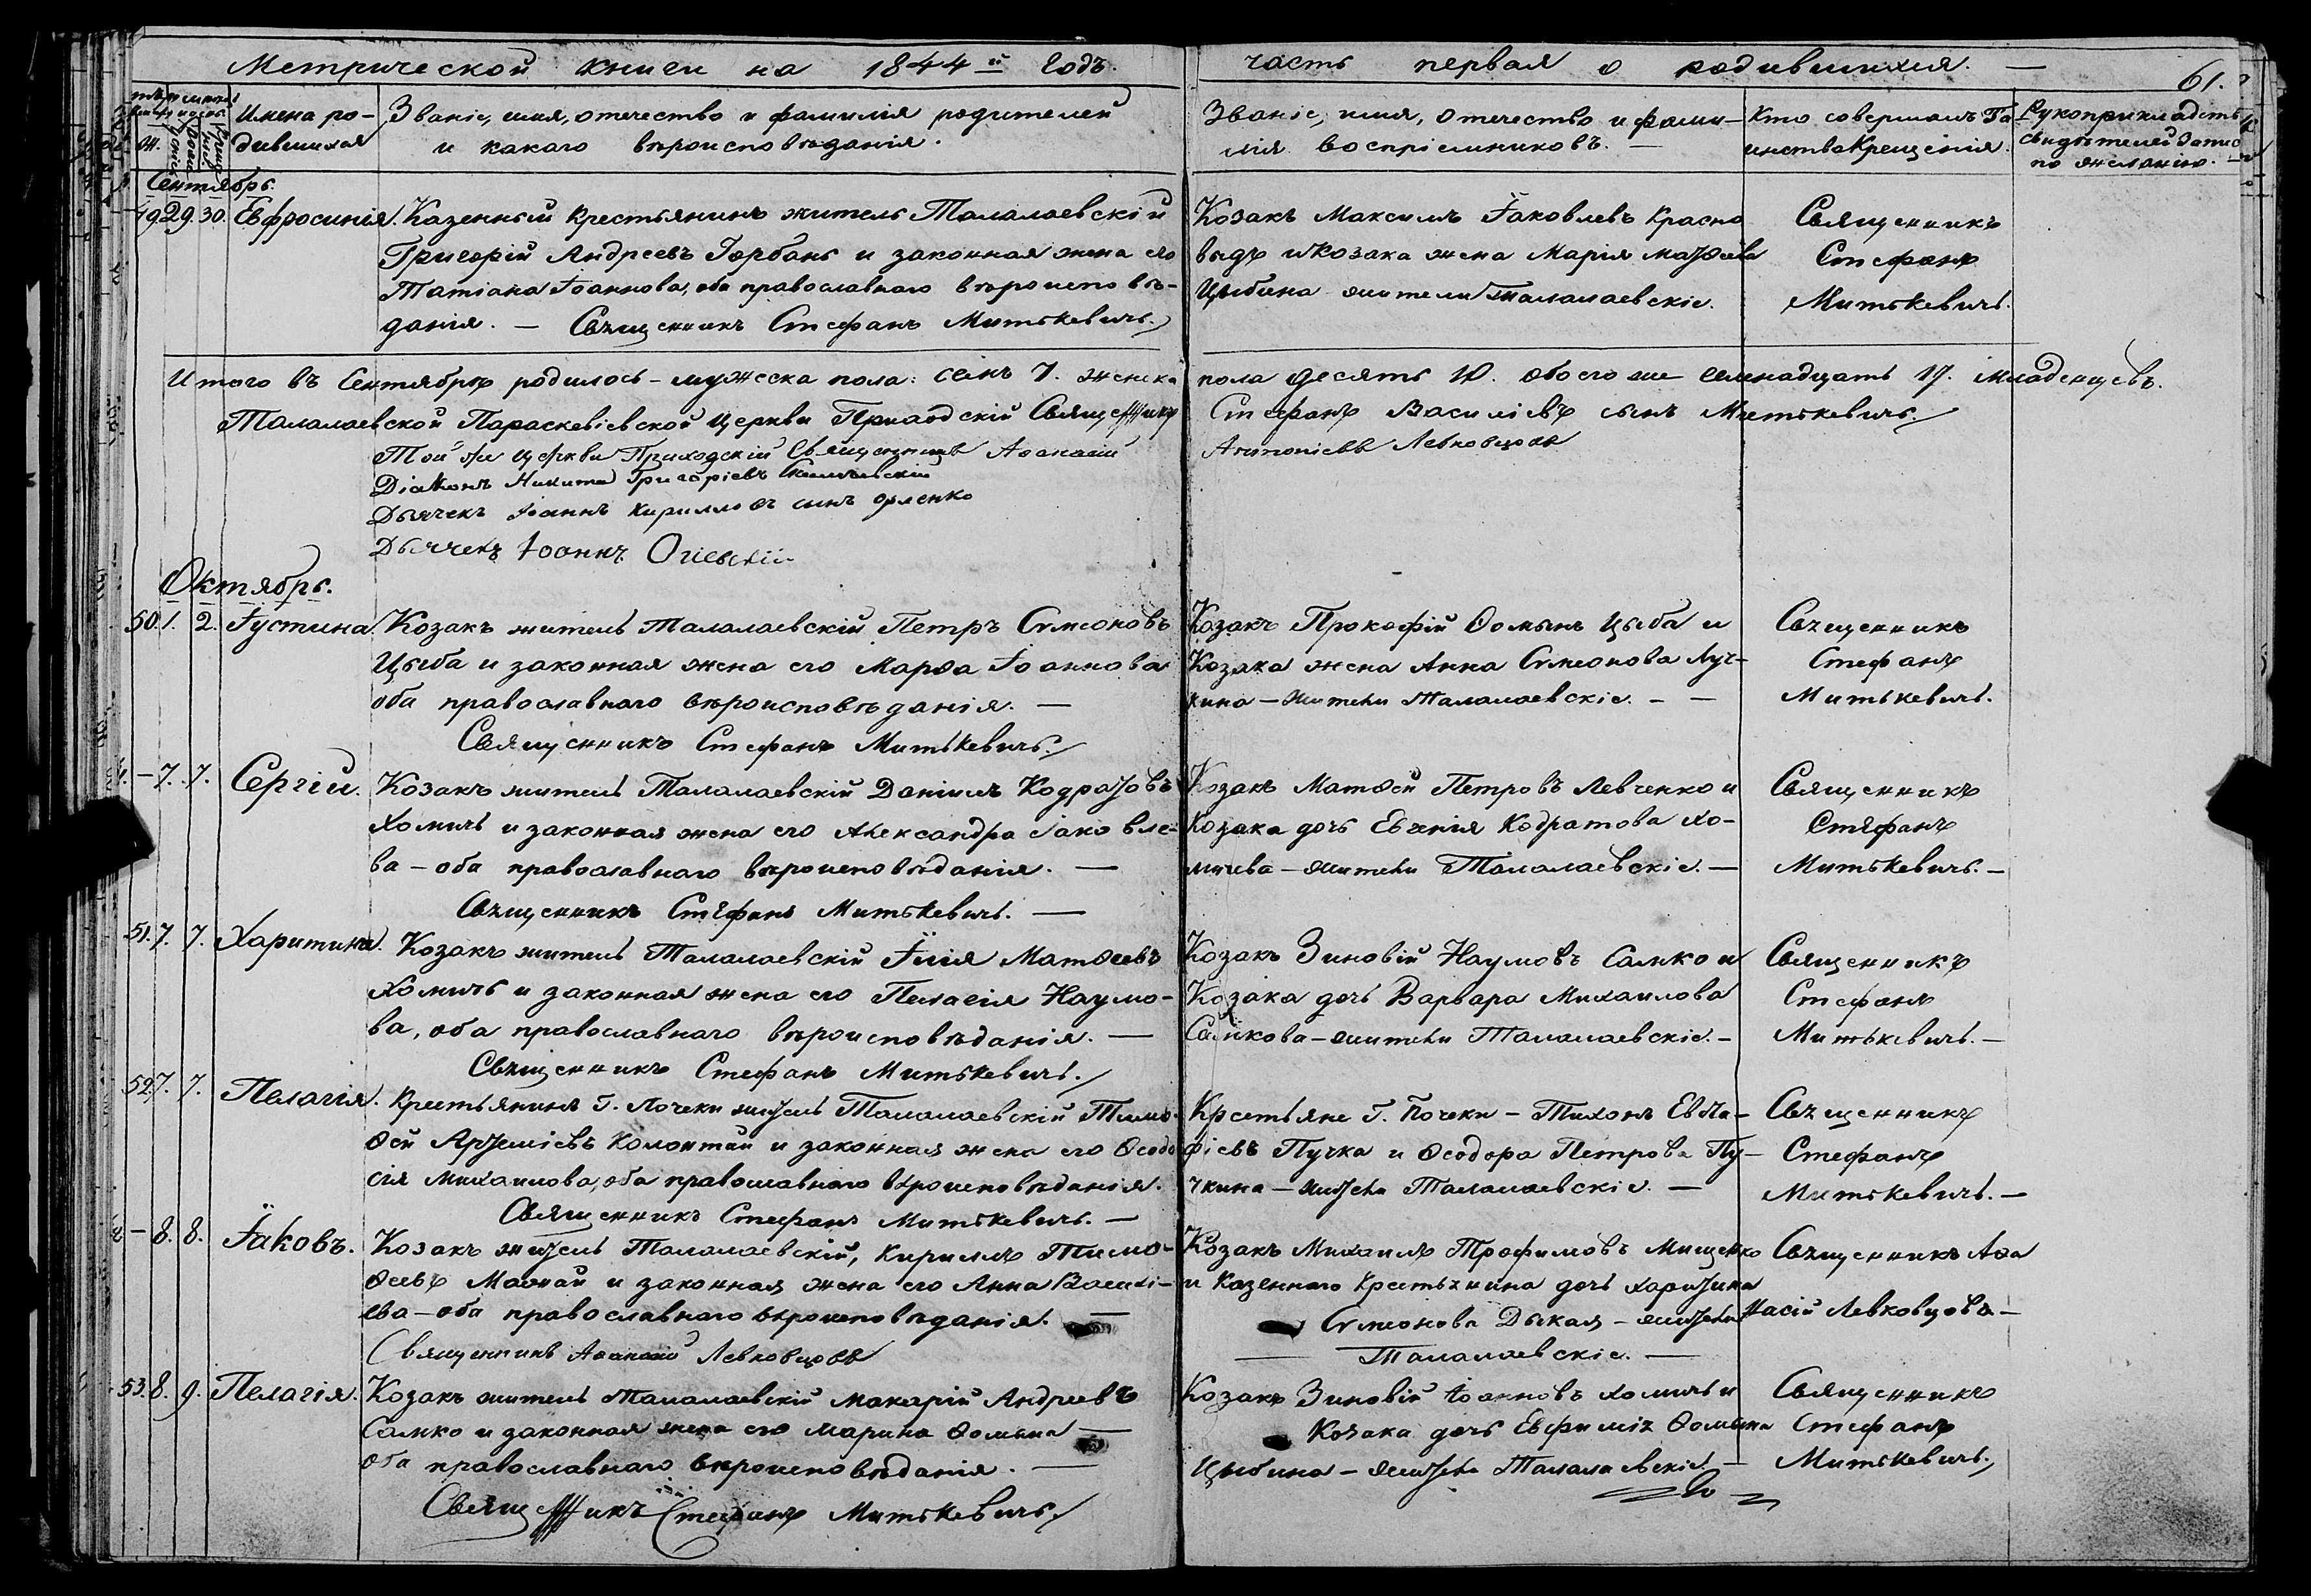 Метрической книги на 1844й Годъ.
часть первая о родившихся. —
61.
Имена ро-
дившихся
Званіе, имя, отечество и фамилія родителей
и какого вѣроисповѣданія.
Званіе, имя, отечество и фами-
лія воспріемниковъ. —
Кто совершалъ Та
инство Крещенія.
Рукоприкладств
свидѣтелей
по желанію.
Сентябрь.
49 29. 30. Евфросинія. Казенный крестьянинъ житель Талалаевскій
Григорій Андреевъ Горбань и законная жена его
Татіана Іоаннова, оба православнаго вѣроисповѣ-
данія. — Священникъ Стефанъ Митькевичъ.
Козакъ Максимъ Іаковлевъ Красно
выдъ и Козака жена Марія Матѳеева
Цыбина жители Талалаевскіе.
Священникъ
Стефанъ
Митькевичъ.
Итого въ Сентябрѣ родилось - мужеска пола: семь 7. женска пола десять 10. обоего же семнадцать 17. младенцевъ.
Талалаевской Параскевіевской церкви Приходскій Священникъ Стефанъ Василіевъ сынъ Митькевичъ.
Той же церкви Приходскій Священникъ Аѳанасій Антоніевъ Левковцовъ
Діаконъ Никита Григоріевъ
Дьячекъ Іоаннъ Кирилловъ сынъ Орленко
Дьячекъ Іоаннъ Огіевскій
Октябрь.
50. 1. 2. Іустина. Козакъ житель Талалаевскій Петръ Сѵмеоновъ
Цыба и законная жена его Марѳа Іоаннова
оба православнаго вѣроисповѣданія. —
Священникъ Стефанъ Митькевичъ.
Козакъ Прокофій Ѳоминъ Цыба и
Козака жена Анна Сѵмеонова Луч-
кина — жители Талалаевскіе. - —
Священникъ
Стефанъ
Митькевичъ.
- 7. 7. Сергій. Козакъ житель Талалаевскій Даніилъ Кодратовъ
Хомичъ и законная жена его Александра Іаковле-
ва — оба православнаго вѣроисповѣданія. —
Священникъ Стефанъ Митькевичъ. —
Козакъ Матѳей Петровъ Левченко и
Козака дочь Евгенія Кодратова Хо-
мичева — жители Талалаевскіе. —
Священникъ
Стефанъ
Митькевичъ. —
51. 7. 7. Харитина. Козакъ житель Талалаевскій Илія Матѳеевъ
Хомичъ и законная жена его Пелагія Наумо-
ва, оба православнаго вѣроисповѣданія. —
Священникъ Стефанъ Митькевичъ.
Козакъ Зиновій Наумовъ Самко и
Козака дочь Варвара Михаилова
Самкова — жители Талалаевскіе. -
Священникъ
Стефанъ
Митькевичъ. —
52. 7. 7. Пелагія. Крестьянинъ Г. Почеки житель Талалаевскій Тимо-
ѳей Артеміевъ Коломтай и законная жена его Ѳеодо
сія Михаилова, оба православнаго вѣроисповѣданія.
Священникъ Стефанъ Митькевичъ. —
Крестьяне Г. Почеки — Тихонъ Евла-
піевъ Пучка и Ѳеодора Петрова Пу-
чкина — жители Талалаевскіе. —
Священникъ
Стефанъ
Митькевичъ. —
- 8. 8. Іаковъ. Козакъ житель Талалаевскій, Кириллъ Тимо-
ѳеевъ Мамай и законная жена его Анна Василі-
ева — оба православнаго вѣроисповѣданія. —
Священникъ Аѳанасій Левковцовъ
Козакъ Михаилъ Трофимовъ Мищенко
и Казеннаго Крестьянина дочь Харитина
Сѵмеонова Дикая — жители
— Талалаевскіе. —
Священникъ Аѳа
насій Левковцовъ —
53. 8. 9. Пелагія. Козакъ житель Талалаевскій Макарій Андреевъ
Самко и законная жена его Марина Ѳомина —
оба православнаго вѣроисповѣданія. —
Священникъ Стефанъ Митькевичъ.
Козакъ Зиновій Іоанновъ Хомичъ и
Козака дочь Евфимія Ѳомина
Цыбина — жители Талалаевскіе. —
Священникъ
Стефанъ
Митькевичъ.